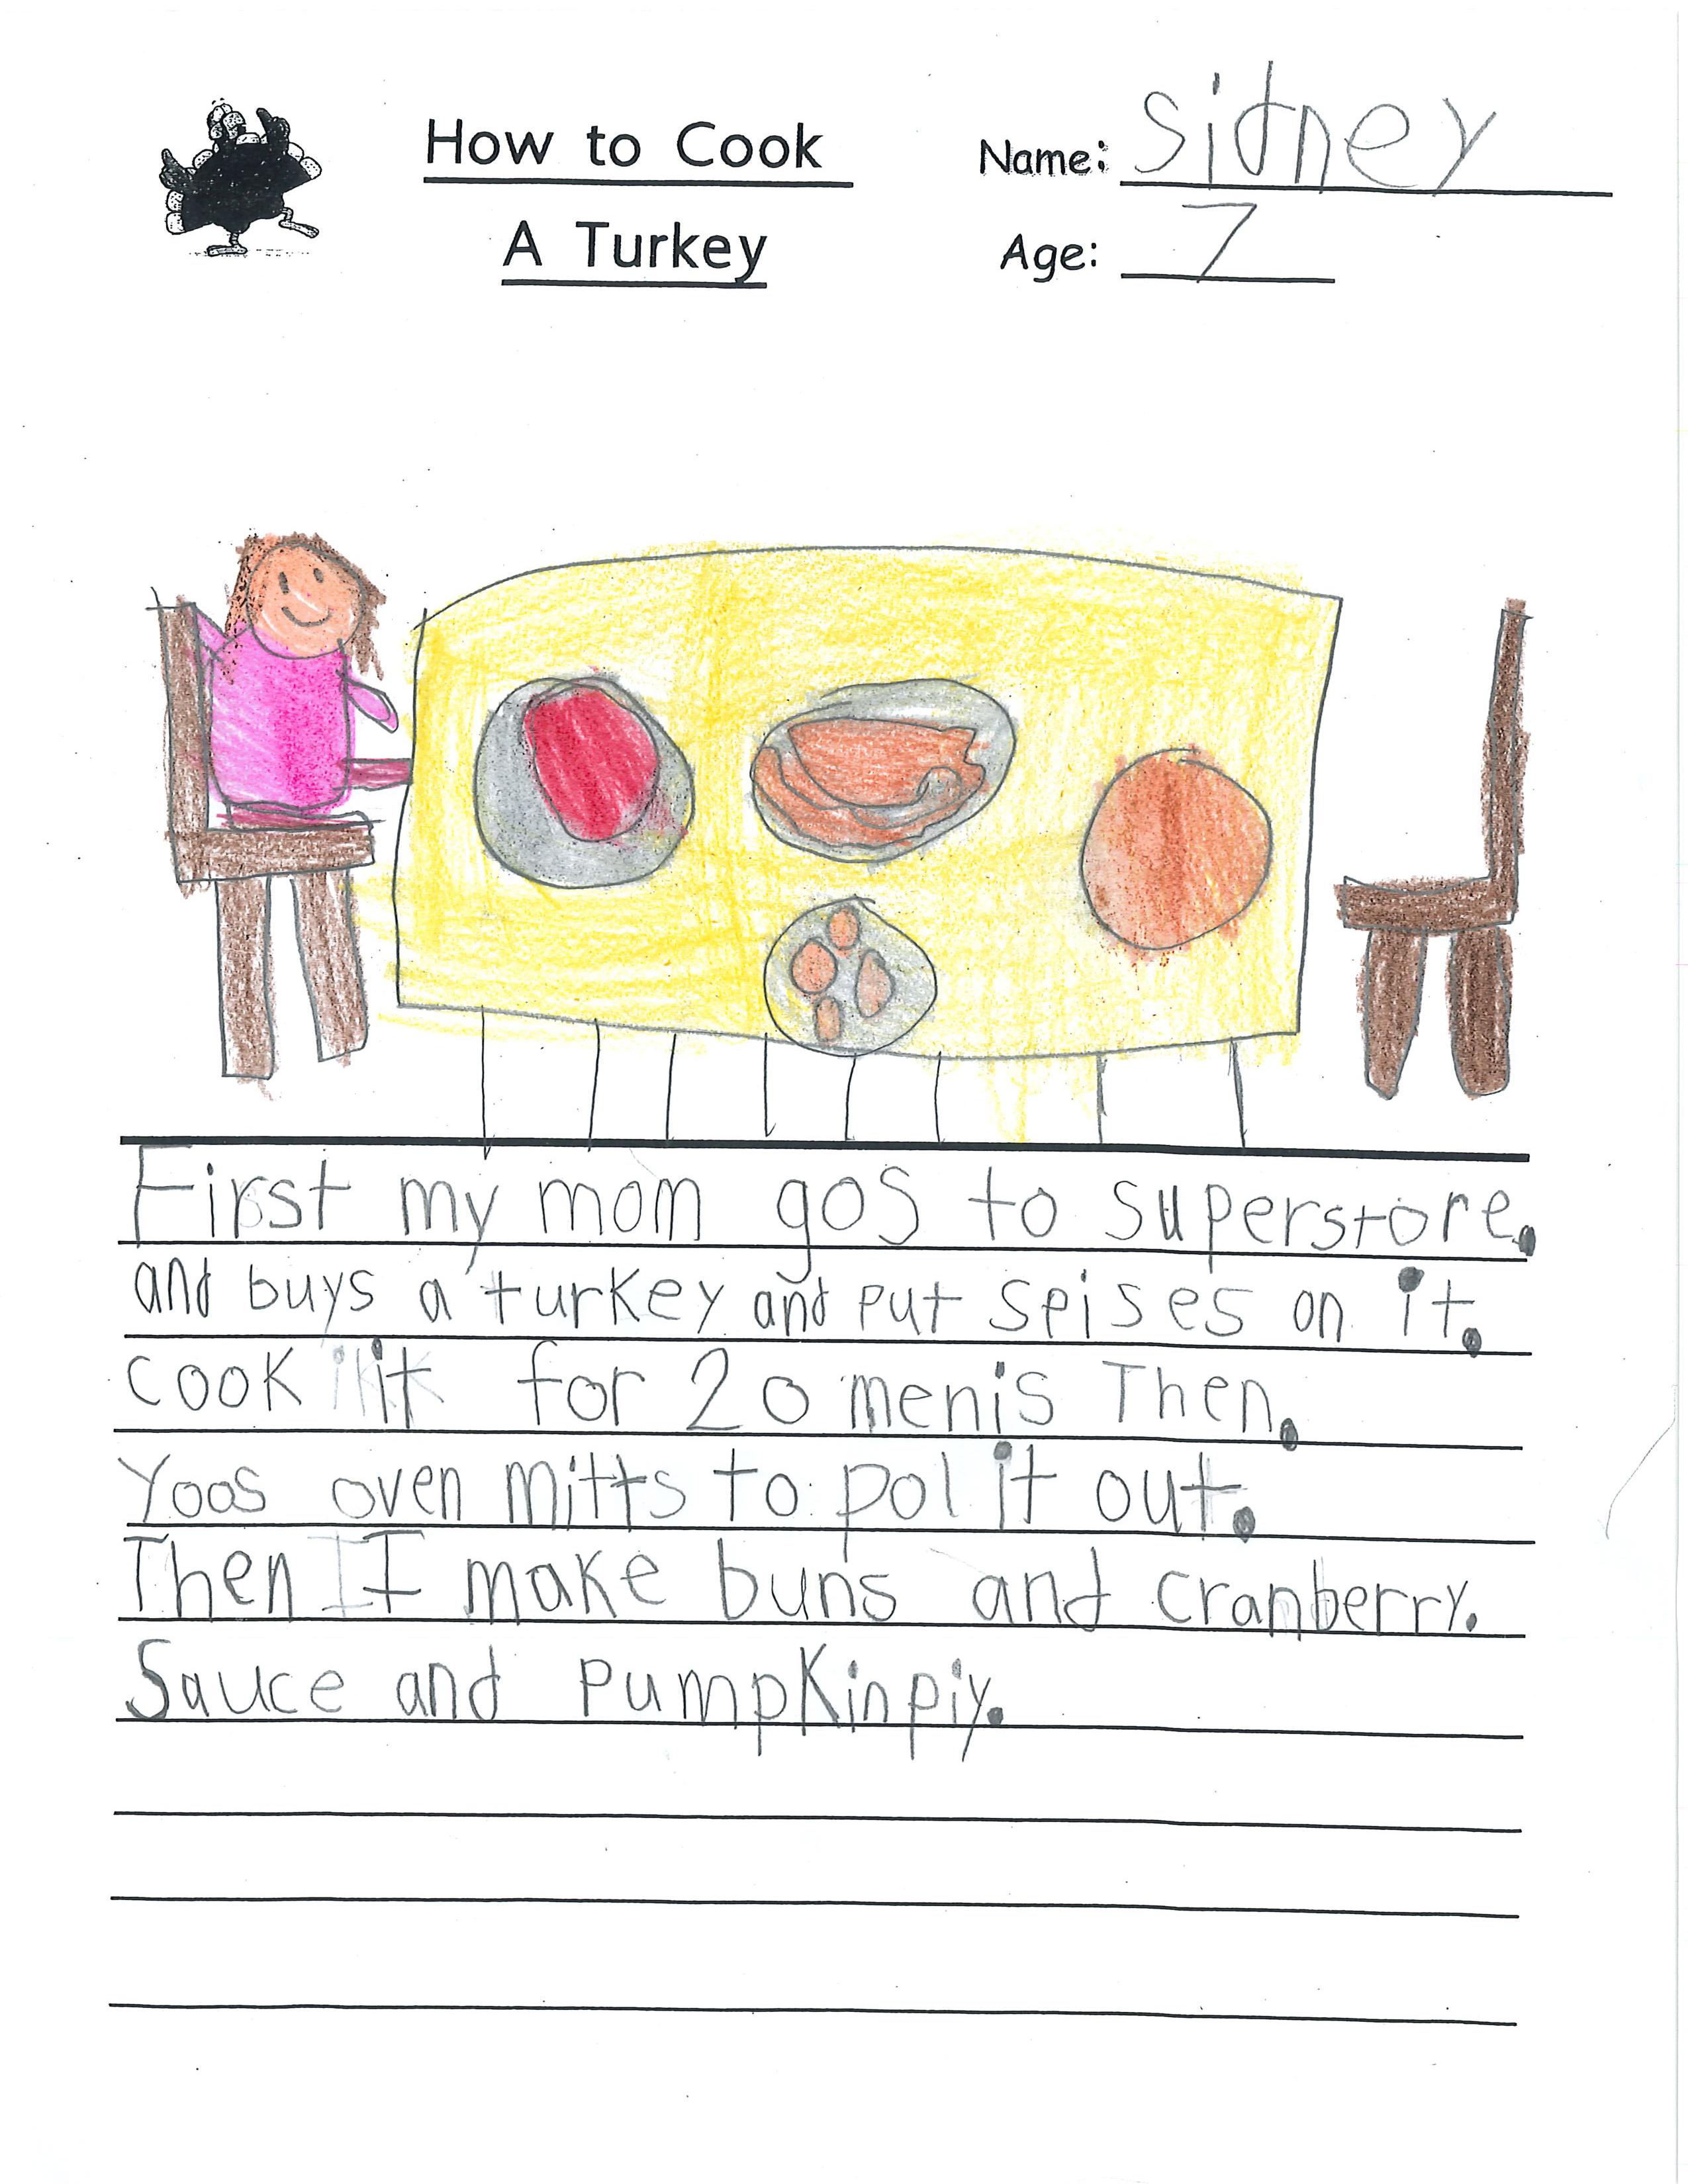 How to Cook
A Turkey
Name: Sidney
Age: 7
First my mom gos to superstore.
and buys a turkey and put spises on it.
cook it for 20 menis Then.
Yoos oven mitts to pol it out.
Then I make buns and cranberry.
Sauce and pumpkinpiy.